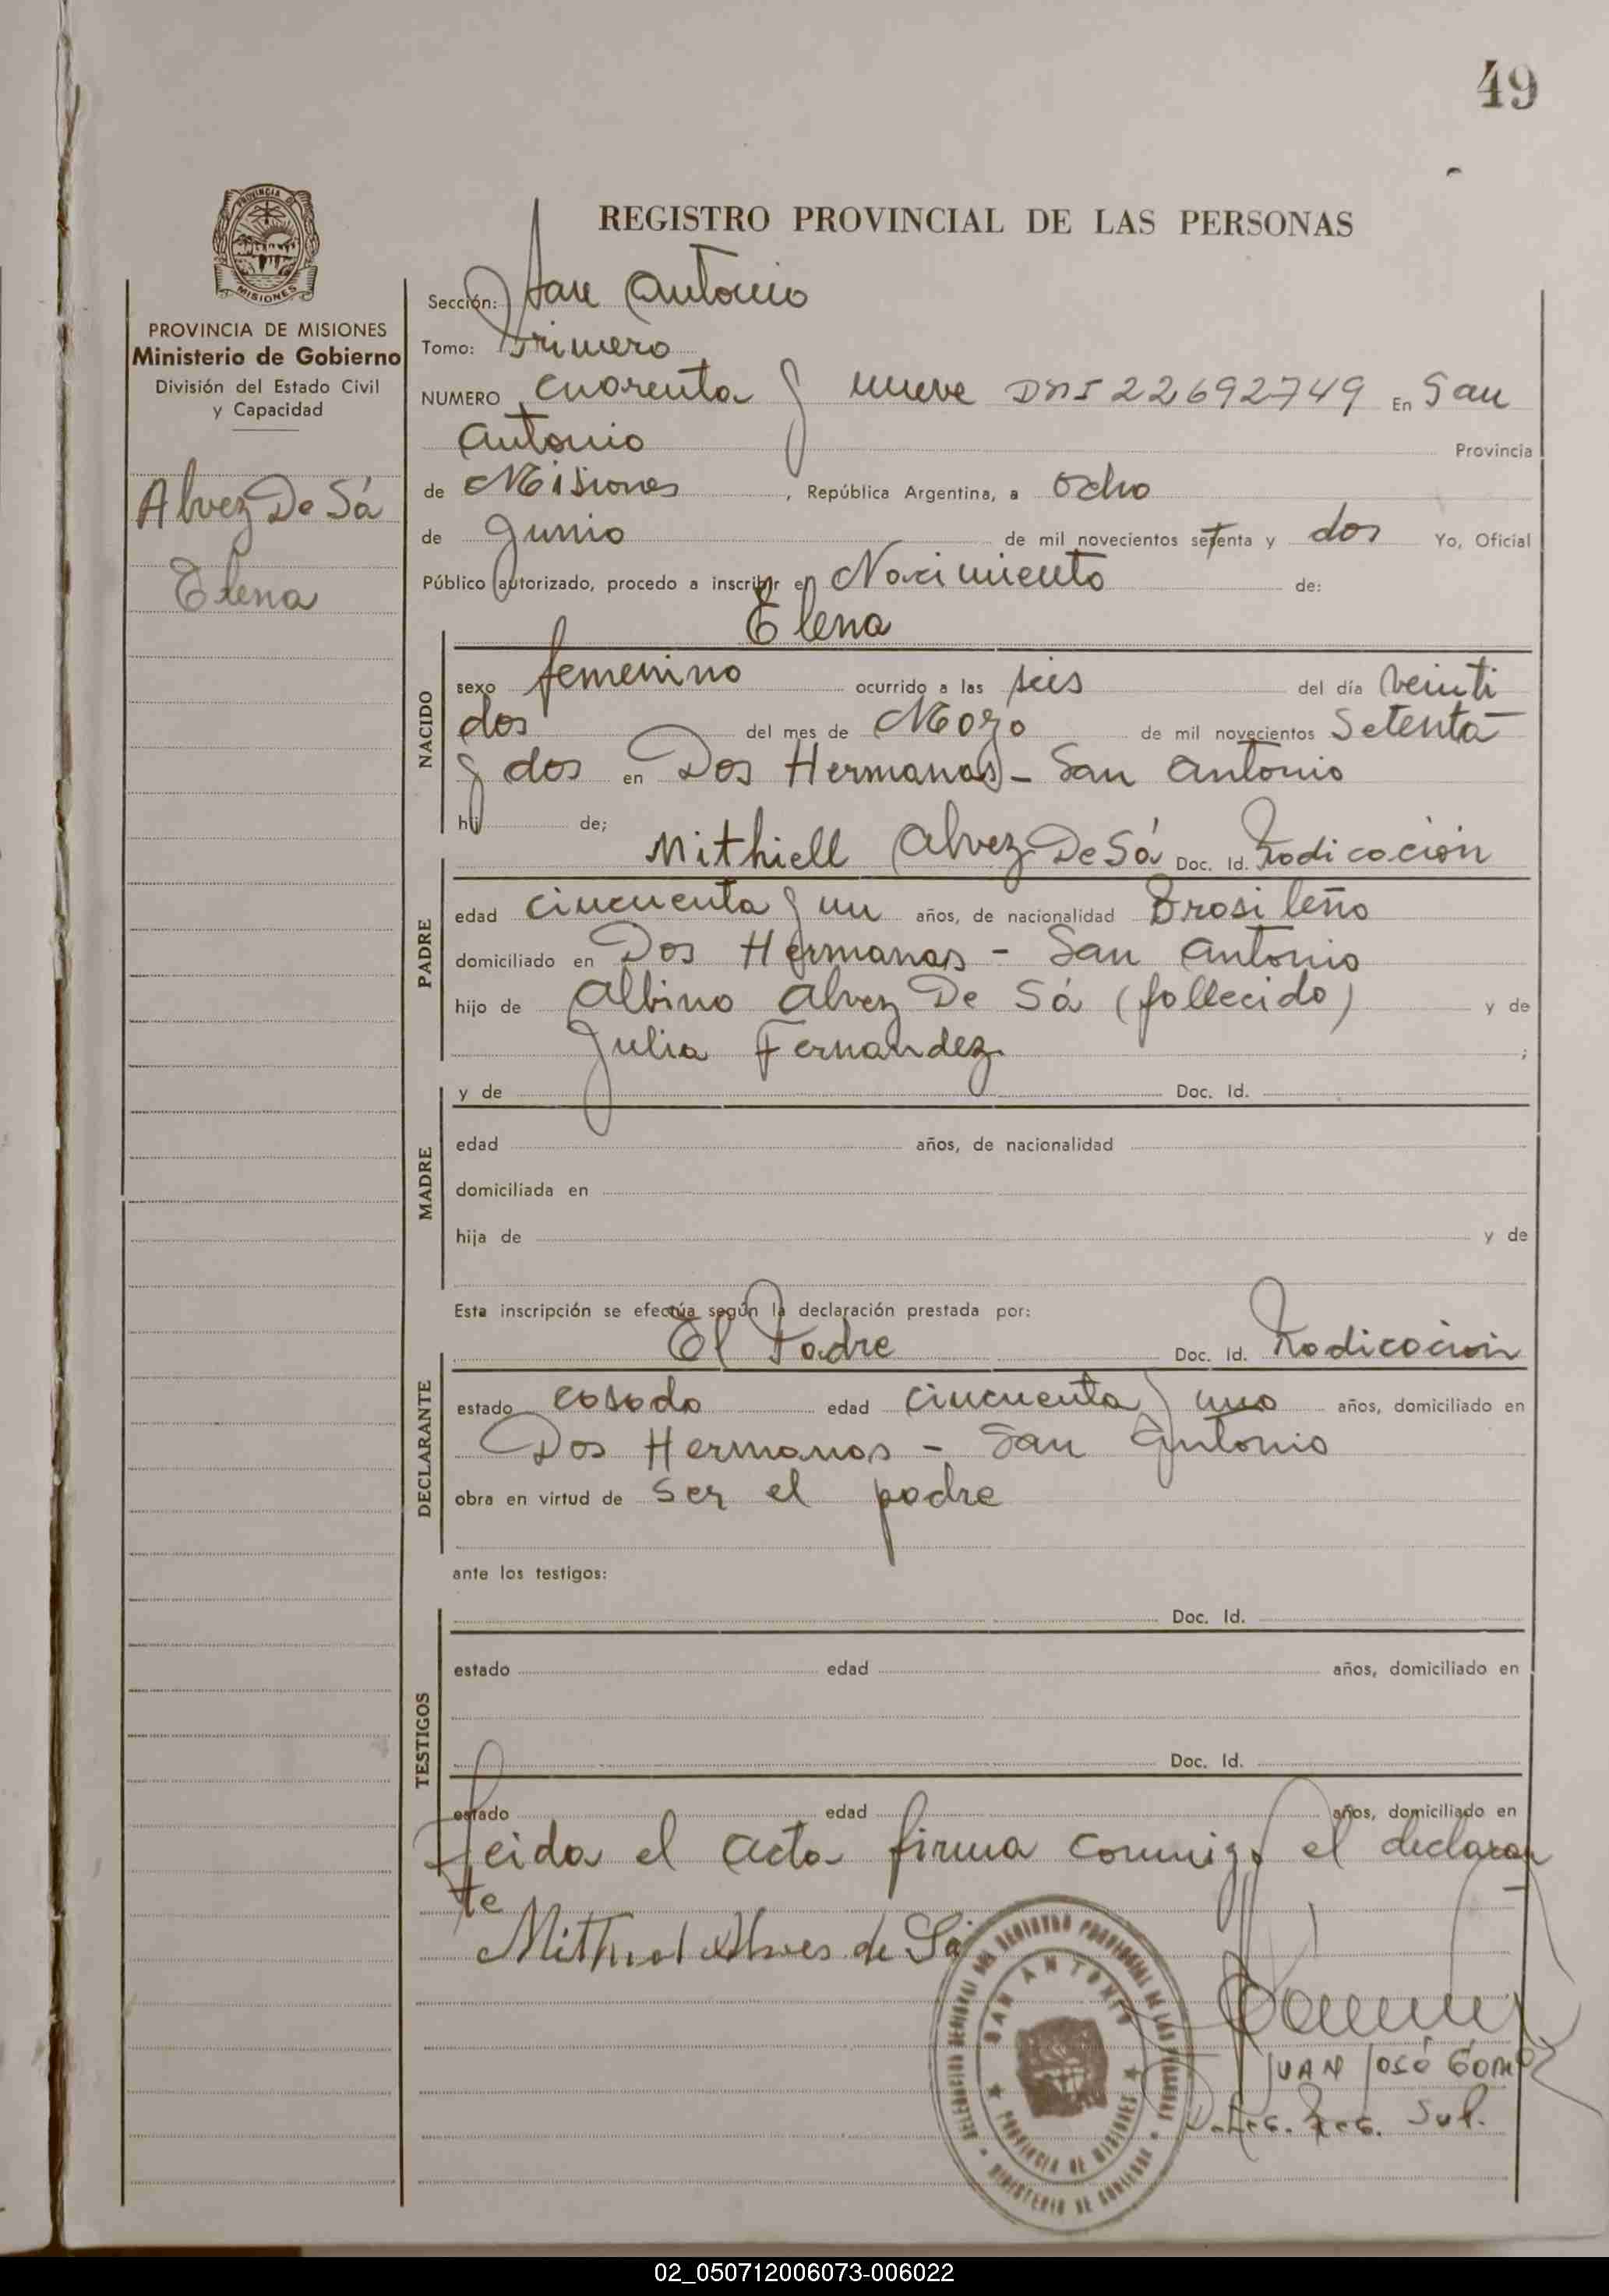 49
PROVINCIA DE
MISIONES
PROVINCIA DE MISIONES
Ministerio de Gobierno
División del Estado Civil
y Capacidad
Alvez De Sá
Elena
REGISTRO PROVINCIAL DE LAS PERSONAS
Sección: San Antonio
Tomo: Primero
NUMERO cuarenta y nueve DNI 22692749 En San
Antonio Provincia
de Misiones, República Argentina, a ocho
de Junio de mil novecientos setenta y dos Yo, Oficial
Público autorizado, procedo a inscribir en Nacimiento de:
Elena
NACIDO
sexo femenino ocurrido a las seis del día veinti
dos del mes de Mayo de mil novecientos Setenta
y dos en Dos Hermanas - San Antonio
hij de;
Mithiell Alvez De Sá Doc. Id. Radicación
PADRE
edad cincuenta y un años, de nacionalidad Brasileño
domiciliado en Dos Hermanas - San Antonio
hijo de Albino Alvez De Sá (fallecido) y de
Julia Fernandez ;
y de Doc. Id.
MADRE
edad años, de nacionalidad
domiciliada en
hija de y de
Esta inscripción se efectúa según la declaración prestada por:
El Padre Doc. Id. Radicación
DECLARANTE
estado casado edad cincuenta y uno años, domiciliado en
Dos Hermanas - San Antonio
obra en virtud de ser el padre
ante los testigos:
Doc. Id.
TESTIGOS
estado edad años, domiciliado en
Doc. Id.
estado edad años, domiciliado en
Leida el acta firma conmigo el declaran
te
Alves de Sá
DELEGACION SECCIONAL DEL REGISTRO PROVINCIAL DE LAS PERSONAS
SAN ANTONIO
PROVINCIA DE MISIONES
MINISTERIO DE GOBIERNO
JUAN JOSÉ GOMEZ
Sup.
02_050712006073-006022